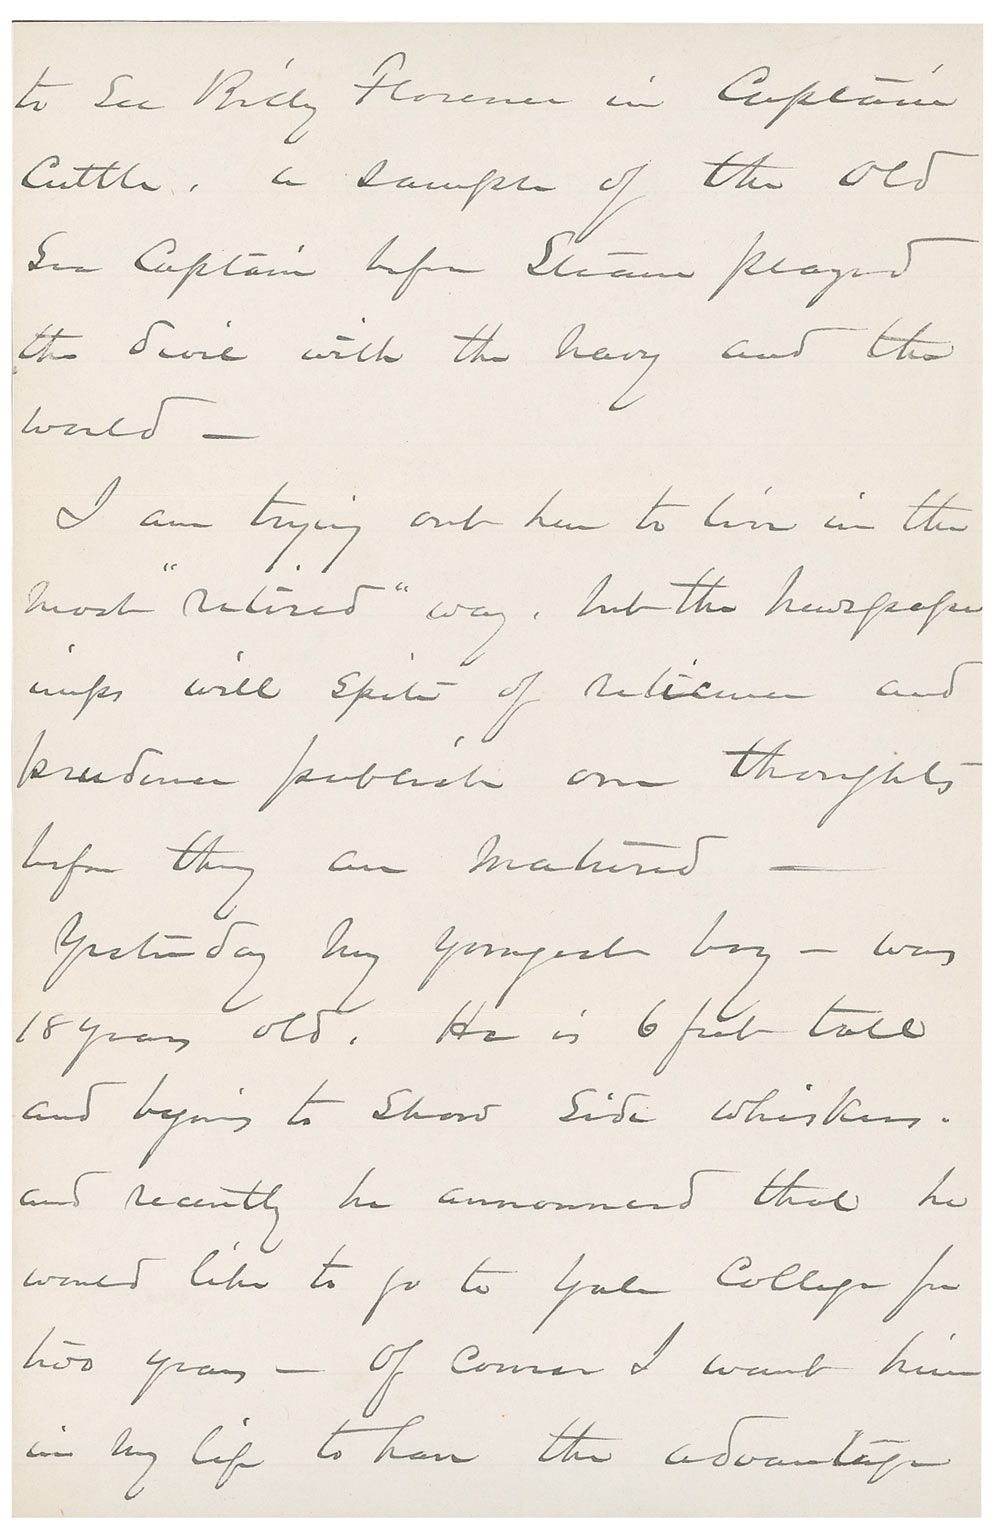 to See Billy Florence in Captain
Cuttle, a sample of the old
Sea Captain before Steam played
the devil with the Navy and the
world —
I am trying out here to live in the
most "retired" way, but the Newspaper
imps will spite of reticence and
prudence publish our thoughts
before they are matured —
Yesterday my youngest boy — was
18 years old. He is 6 feet tall
and begins to Show Side whiskers.
and recently he announced that he
would like to go to Yale College for
two years — Of course I want him
in my life to have the advantage